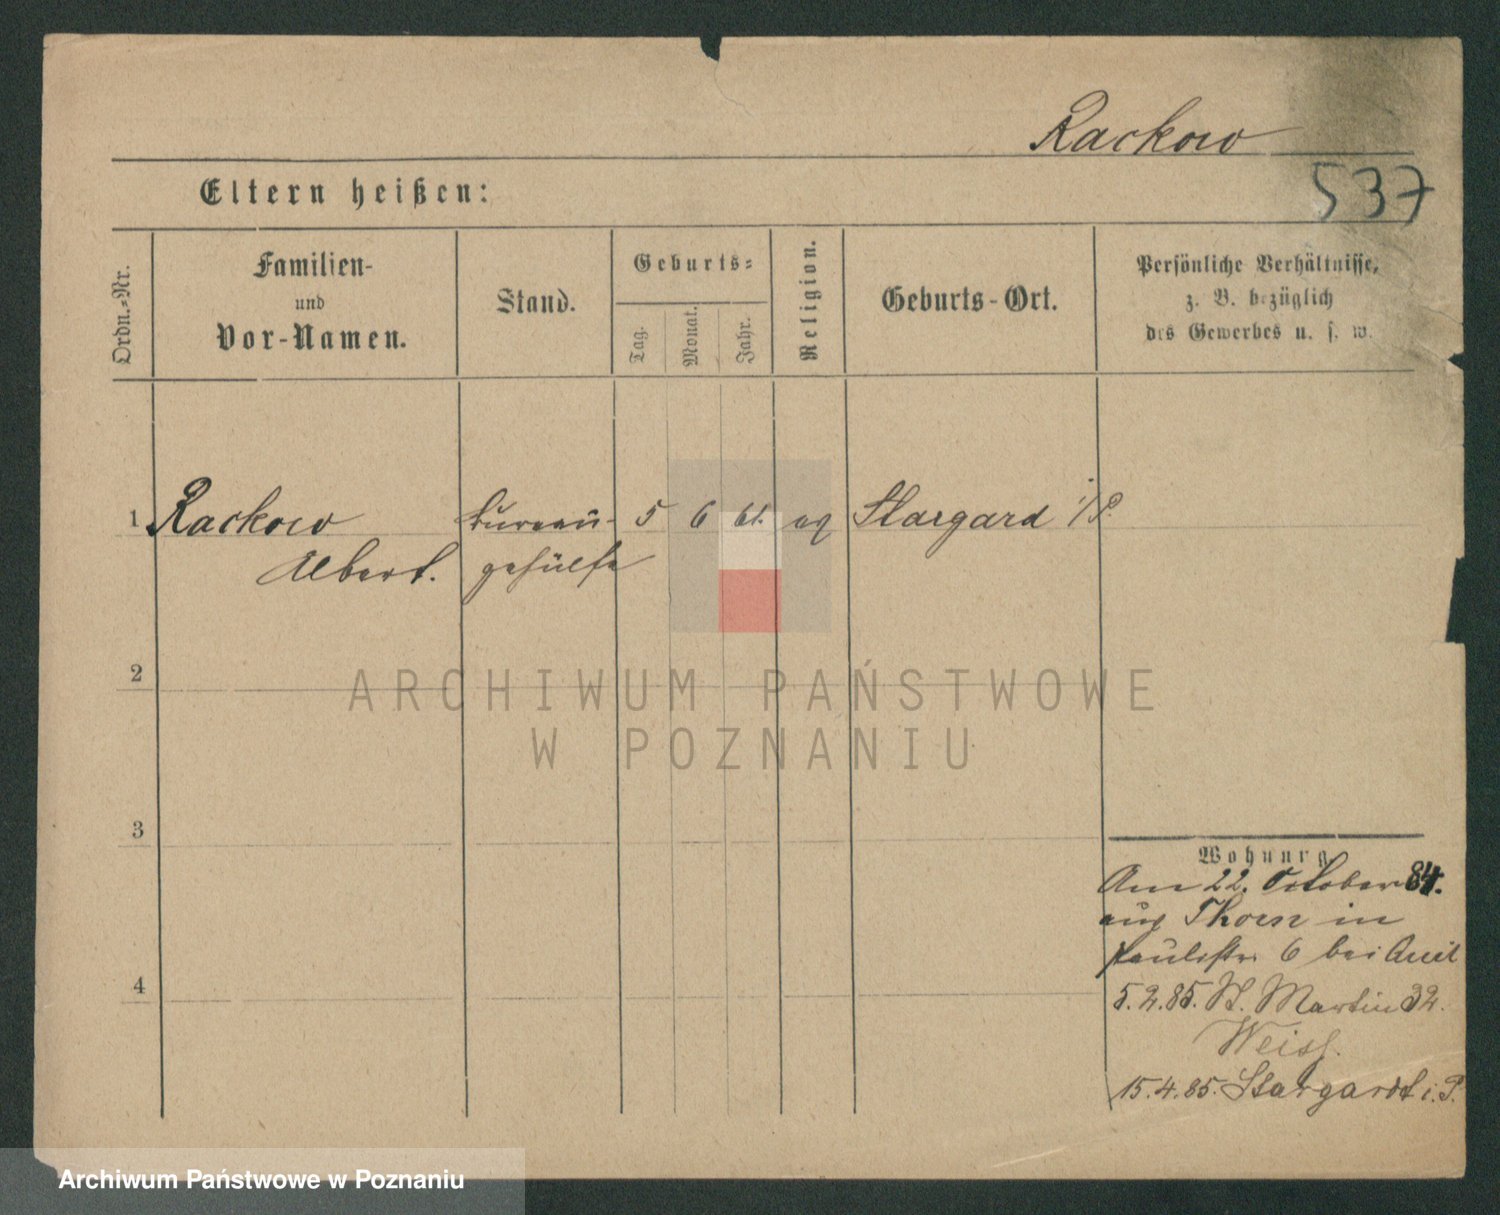 Rackow
537
Eltern heißen:
Ordn.-Nr.
Familien-
und
Vor-Namen.
Stand.
Geburts-
Tag.
Monat.
Jahr.
Religion.
Geburts-Ort.
Persönliche Verhältnisse,
z. B. bezüglich
des Gewerbes u. s. w.
1 Rackow Bureau- 5 6 61. ev Stargard i/P.
Albert. gehülfe
2
ARCHIWUM PAŃSTWOWE
W POZNANIU
3
Wohnung
Am 22. October 84.
aus Thorn in
Paulistr. 6 bei
4
5.2.85. St. Martin 32.
Weiss.
15.4.85. Stargardt i. P.
Archiwum Państwowe w Poznaniu